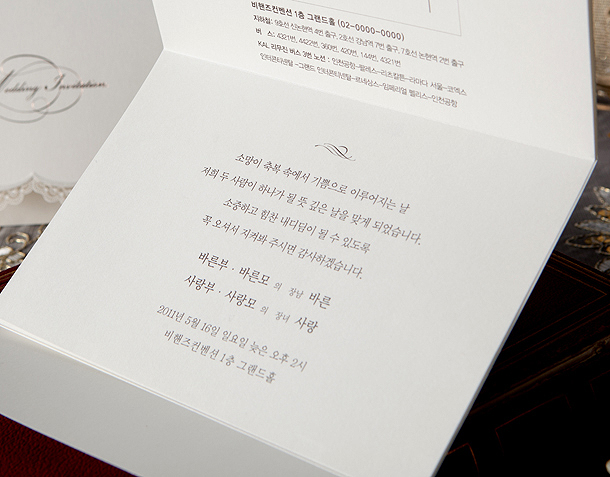 Wedding Invitation
비핸즈컨벤션 1층 그랜드홀 (02-0000-0000)
지하철: 9호선 신논현역 4번 출구, 2호선 강남역 7번 출구, 7호선 논현역 2번 출구
버 스: 4321번, 4422번, 360번, 420번, 144번, 4321번
KAL 리무진 버스 3번 노선: 인천공항-팔레스-리츠칼튼-라마다 서울-코엑스
인터콘티넨탈-그랜드 인터콘티넨탈-르네상스-임페리얼 팰리스-인천공항
소망이 축복 속에서 기쁨으로 이루어지는 날
저희 두 사람이 하나가 될 뜻 깊은 날을 맞게 되었습니다.
소중하고 힘찬 내디딤이 될 수 있도록
꼭 오셔서 지켜봐 주시면 감사하겠습니다.
바른부 · 바른모 의 장남 바른
사랑부 · 사랑모 의 장녀 사랑
2011년 5월 16일 일요일 늦은 오후 2시
비핸즈컨벤션 1층 그랜드홀